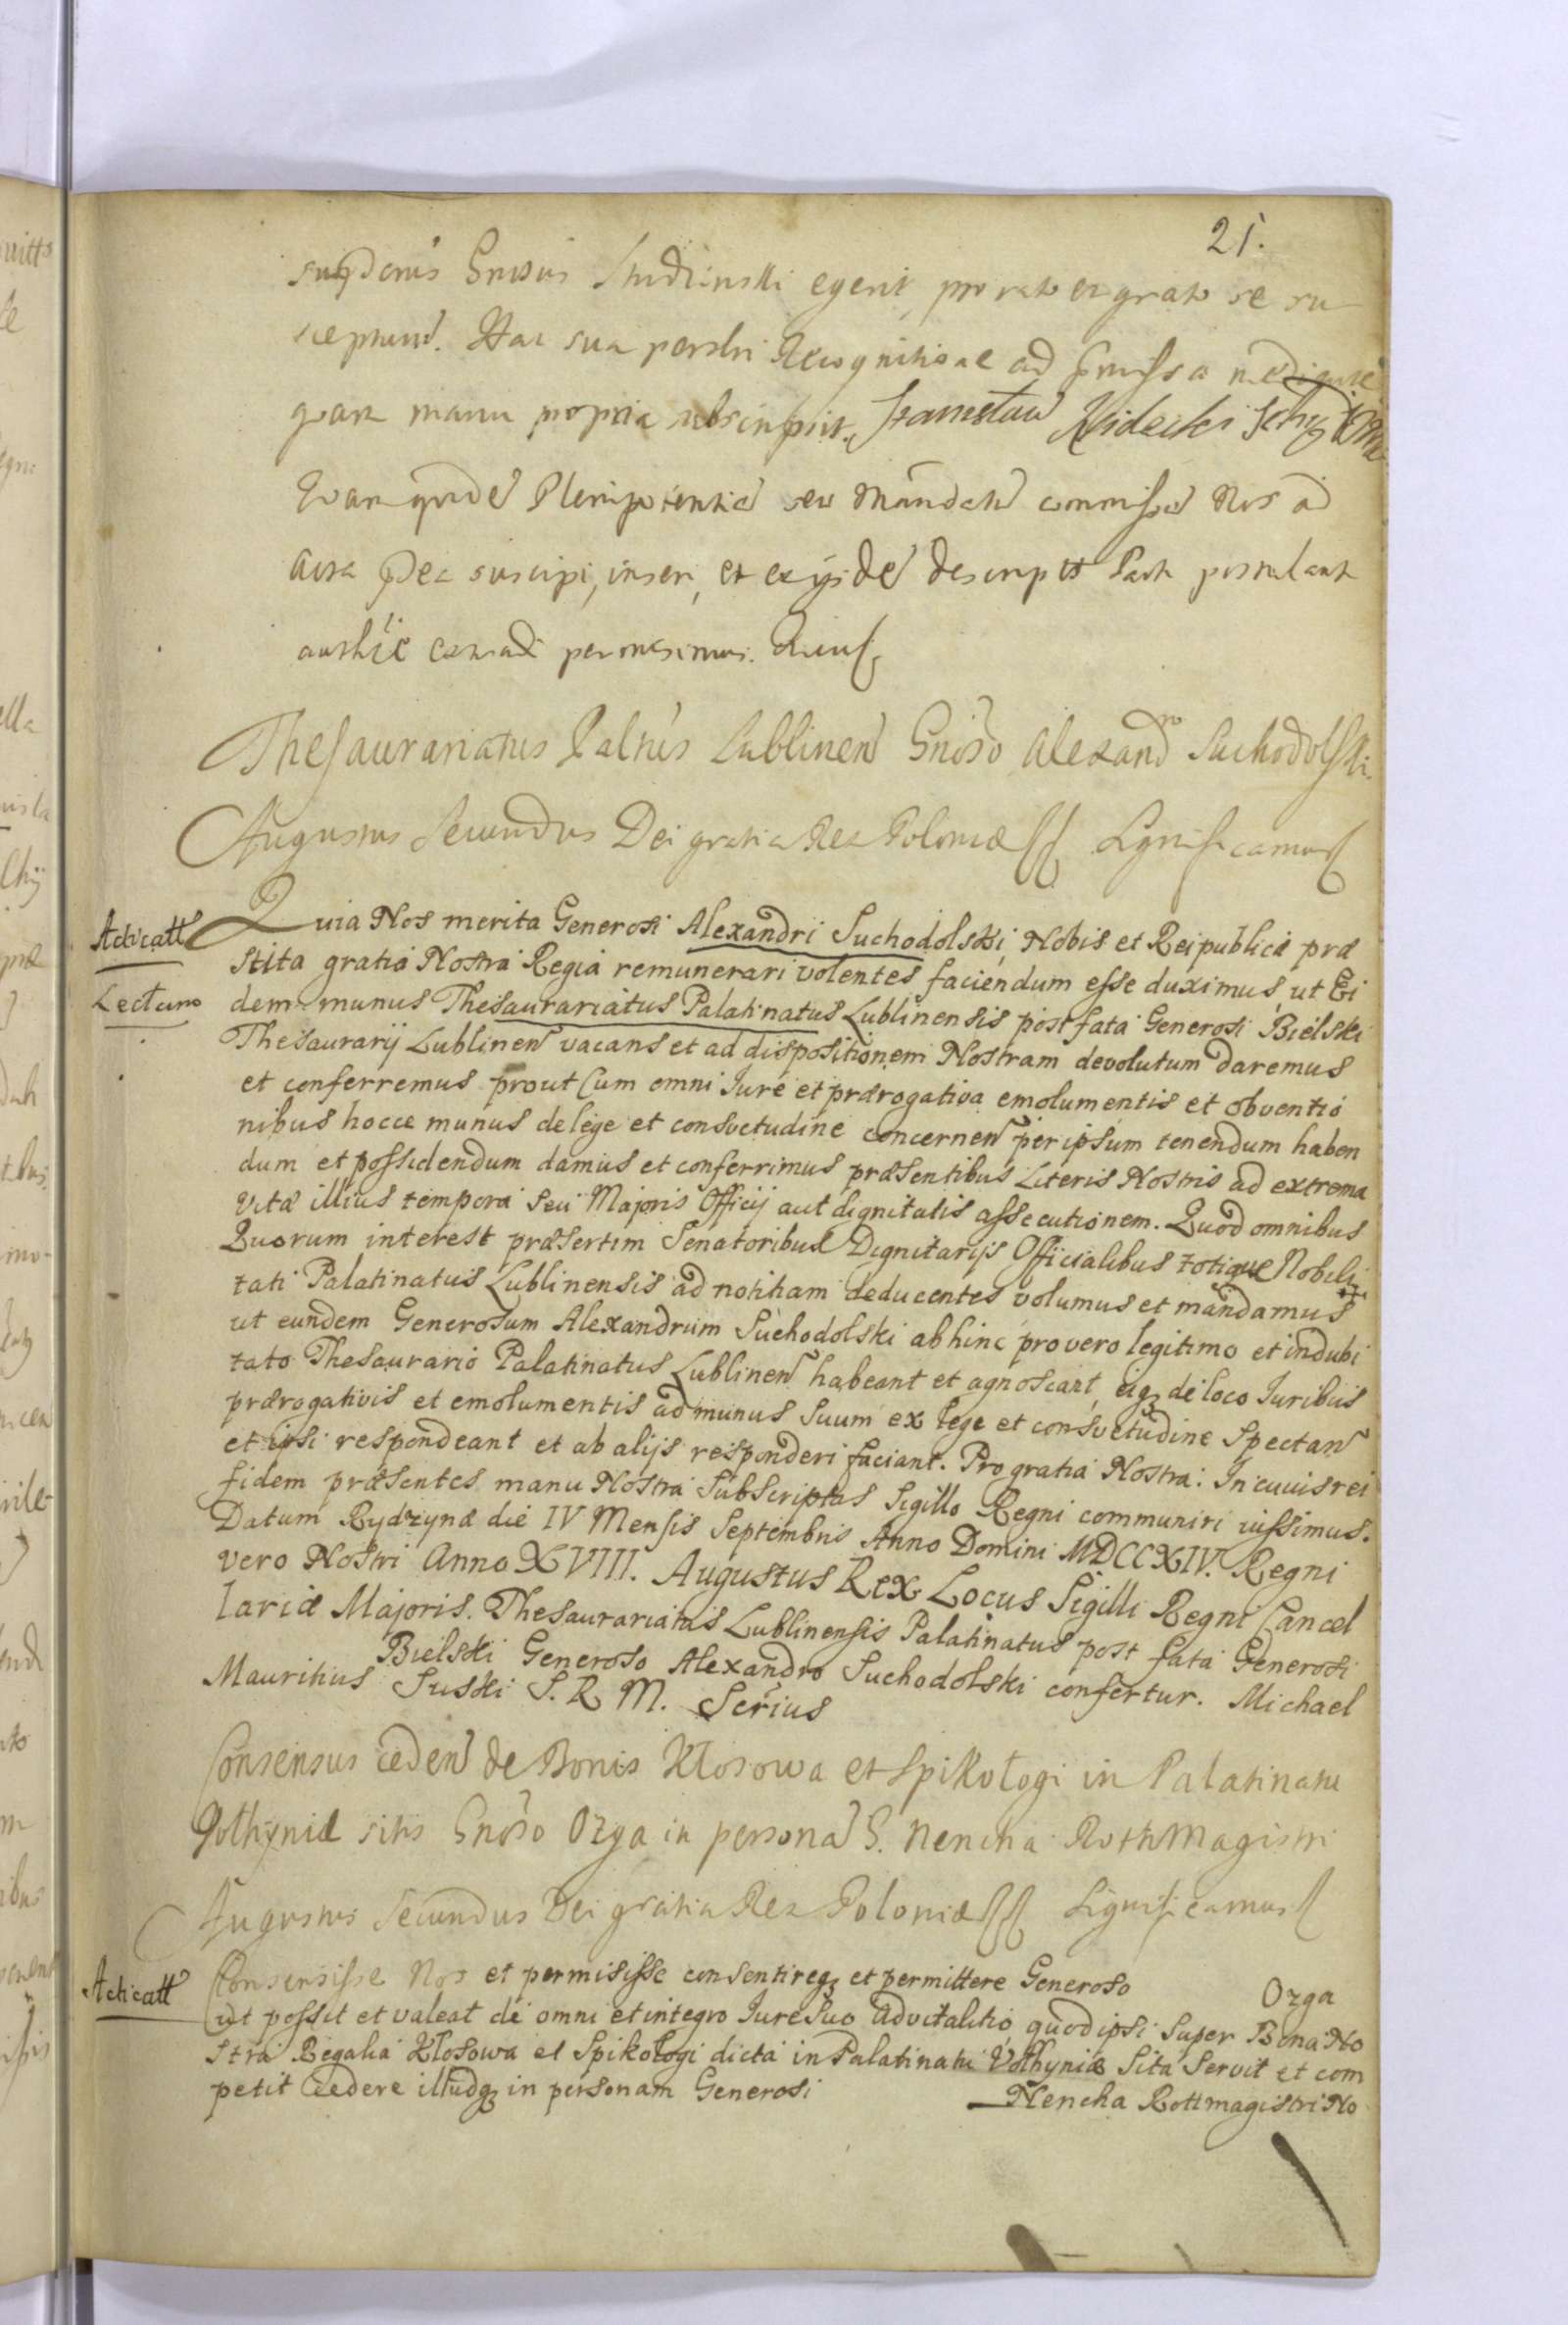 21.
Gnosus Studzinski egerit, pro rato et grato se su
scepturum. Hac sua personali Recognitione ad praemissa mediante
quam manu propria subscripsit. Stanisław Nidecki
Quam quide Plenipotentia seu Mandatu commissu Nos ad
acta pnta suscipi, inseri, et ex ijsde descriptt Parti postulanti
authēc extradi permisimus.
Thesaurariatus Paltūs Lublinen Gnōso Alexandro Suchodolski.
Augustus Secundus Dei gratia Rex Poloniæ Significamus
Acticatt
Quia Nos merita Generosi Alexandri Suchodolski, Nobis et Reipublicæ præ
stita gratia Nostra Regia remunerari volentes faciendum esse duximus, ut Ei
Lectum
dem munus Thesaurariatus Palatinatus Lublinensis post fata Generosi Bielski
Thesaurarij Lublinen vacans et ad dispositionem Nostram devolutum daremus
et conferremus prout Cum omni Jure et prærogativa emolumentis et obventio
nibus hocce munus de lege et consvetudine concernen per ipsum tenendum haben
dum et possidendum damus et conferrimus præsentibus Literis Nostris ad extrema
vitæ illius tempora seu Majoris Officij aut dignitatis assecutionem. Quod omnibus
Quorum interest præsertim Senatoribus Dignitarijs Officialibus totique Nobili
tati Palatinatus Lublinensis ad notitiam deducentes volumus et mandamus
ut eundem Generosum Alexandrum Suchodolski abhinc pro vero legitimo et indubi
tato Thesaurario Palatinatus Lublinen habeant et agnoscant, eiq de loco Juribus
prærogativis et emolumentis ad munus Suum ex lege et consvetudine Spectan
et ipsi respondeant et ab alijs responderi faciant. Pro gratia Nostra. In cuius rei
fidem præsentes manu Nostra Subscriptas Sigillo Regni communiri iussimus.
Datum Rydzynæ die IV Mensis Septembris Anno Domini MDCCXIV. Regni
vero Nostri Anno XVIII. Augustus Rex Locus Sigilli Regni Cancel
lariæ Majoris. Thesaurariatus Lublinensis Palatinatus post fata Generosi
Bielski Generoso Alexandro Suchodolski confertur. Michael
Mauritius Suski S. R. M. Scrius
Consensus ceden de Bonis Kłosowa et Spikołogi in Palatinatu
Volhyniæ sitis Gnōso Ozga in persona G. Nencha Rothmagistri
Augustus Secundus Dei gratia Rex Poloniæ Significamus
Acticatt
Consensisse Nos et permisisse consentireq et permittere Generoso Ozga
ut possit et valeat de omni et integro Jure Suo advitalitio quod ipsi Super Bona No
stra Regalia Kłosowa et Spikołogi dicta in Palatinatu Volhyniæ Sita Servit et com
petit Cedere illudq in personam Generosi Nencha Rottmagistri No